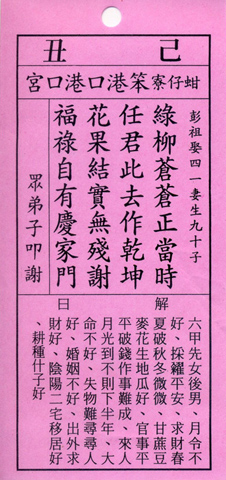 己丑
蚶仔寮笨港口港口宮
彭祖娶四一妻生九十子
綠柳蒼蒼正當時
任君此去作乾坤
花果結實無殘謝
福祿自有慶家門
眾弟子叩謝
解曰
六甲先女後男、月令不
好、採糴平安、求財春
夏破秋冬微微、甘蔗豆
麥花生地瓜好、官事平
平破錢作事難成、來人
月光到不則下半年、大
命不好、失物難尋尋人
好、婚姻不好、出外求
財好、陰陽二宅移居好
、耕種什子好